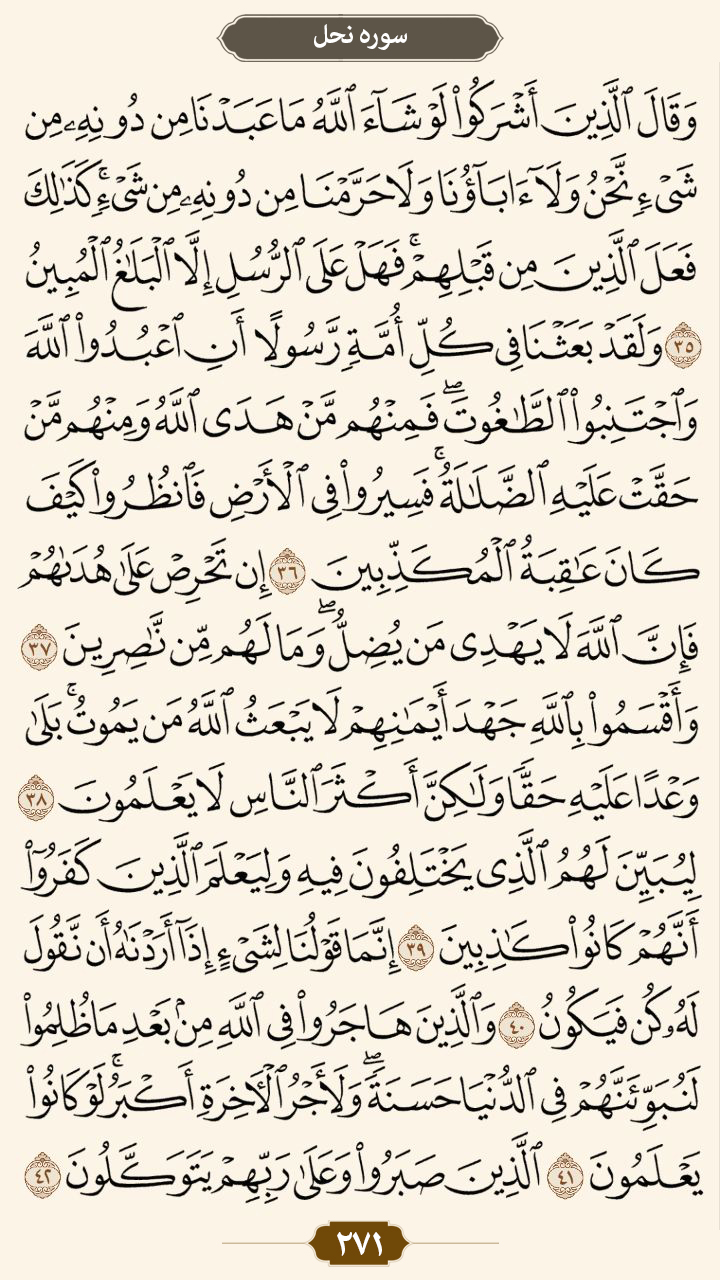 سوره نحل
وَقَالَ ٱلَّذِينَ أَشْرَكُوا۟ لَوْ شَآءَ ٱللَّهُ مَا عَبَدْنَا مِن دُونِهِۦ مِن
شَىْءٍۢ نَّحْنُ وَلَآ ءَابَآؤُنَا وَلَا حَرَّمْنَا مِن دُونِهِۦ مِن شَىْءٍۢ ۚ كَذَٰلِكَ
فَعَلَ ٱلَّذِينَ مِن قَبْلِهِمْ ۚ فَهَلْ عَلَى ٱلرُّسُلِ إِلَّا ٱلْبَلَٰغُ ٱلْمُبِينُ
٣٥ وَلَقَدْ بَعَثْنَا فِى كُلِّ أُمَّةٍۢ رَّسُولًا أَنِ ٱعْبُدُوا۟ ٱللَّهَ
وَٱجْتَنِبُوا۟ ٱلطَّٰغُوتَ ۖ فَمِنْهُم مَّنْ هَدَى ٱللَّهُ وَمِنْهُم مَّنْ
حَقَّتْ عَلَيْهِ ٱلضَّلَٰلَةُ ۚ فَسِيرُوا۟ فِى ٱلْأَرْضِ فَٱنظُرُوا۟ كَيْفَ
كَانَ عَٰقِبَةُ ٱلْمُكَذِّبِينَ ٣٦ إِن تَحْرِصْ عَلَىٰ هُدَىٰهُمْ
فَإِنَّ ٱللَّهَ لَا يَهْدِى مَن يُضِلُّ ۖ وَمَا لَهُم مِّن نَّٰصِرِينَ ٣٧
وَأَقْسَمُوا۟ بِٱللَّهِ جَهْدَ أَيْمَٰنِهِمْ لَا يَبْعَثُ ٱللَّهُ مَن يَمُوتُ ۚ بَلَىٰ
وَعْدًا عَلَيْهِ حَقًّۭا وَلَٰكِنَّ أَكْثَرَ ٱلنَّاسِ لَا يَعْلَمُونَ ٣٨
لِيُبَيِّنَ لَهُمُ ٱلَّذِى يَخْتَلِفُونَ فِيهِ وَلِيَعْلَمَ ٱلَّذِينَ كَفَرُوٓا۟
أَنَّهُمْ كَانُوا۟ كَٰذِبِينَ ٣٩ إِنَّمَا قَوْلُنَا لِشَىْءٍ إِذَآ أَرَدْنَٰهُ أَن نَّقُولَ
لَهُۥ كُن فَيَكُونُ ٤٠ وَٱلَّذِينَ هَاجَرُوا۟ فِى ٱللَّهِ مِنۢ بَعْدِ مَا ظُلِمُوا۟
لَنُبَوِّئَنَّهُمْ فِى ٱلدُّنْيَا حَسَنَةًۭ ۖ وَلَأَجْرُ ٱلْـَٔاخِرَةِ أَكْبَرُ ۚ لَوْ كَانُوا۟
يَعْلَمُونَ ٤١ ٱلَّذِينَ صَبَرُوا۟ وَعَلَىٰ رَبِّهِمْ يَتَوَكَّلُونَ ٤٢
٢٧١